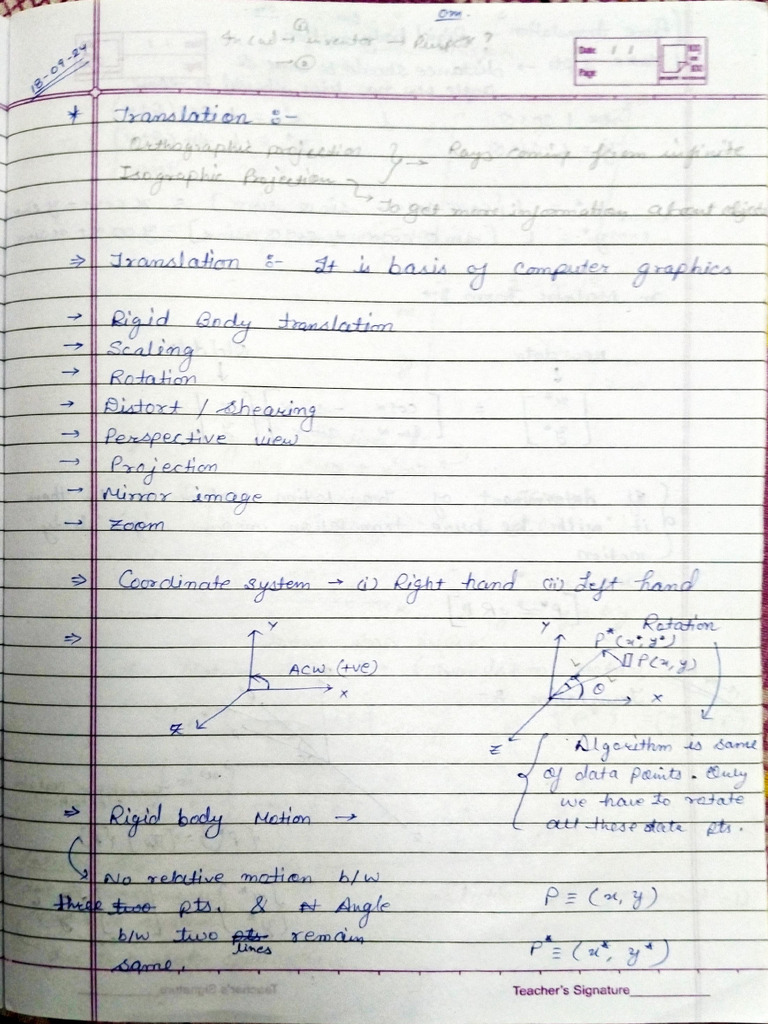 om.
In cad → inventor → Purpose?
18-09-24
Date: / /
Page:
* Translation :-
Orthographic projection } → Rays coming from infinite
Isographic Projection → To get more information about object
⇒ Translation :- It is basis of computer graphics
→ Rigid Body translation
→ Scaling
→ Rotation
→ Distort / Shearing
→ Perspective view
→ Projection
→ Mirror image
→ Zoom
⇒ Coordinate system → (i) Right hand (ii) Left hand
⇒ Y ACW (+ve) X Z
Rotation
Y P*(x*, y*)
P(x, y)
θ X
Z
Algorithm is same
of data points. Only
we have to rotate
all these data pts.
⇒ Rigid body Motion →
No relative motion b/w
three two pts. & Angle
b/w two pts lines remain
same.
P ≡ (x, y)
P* ≡ (x*, y*)
Teacher's Signature